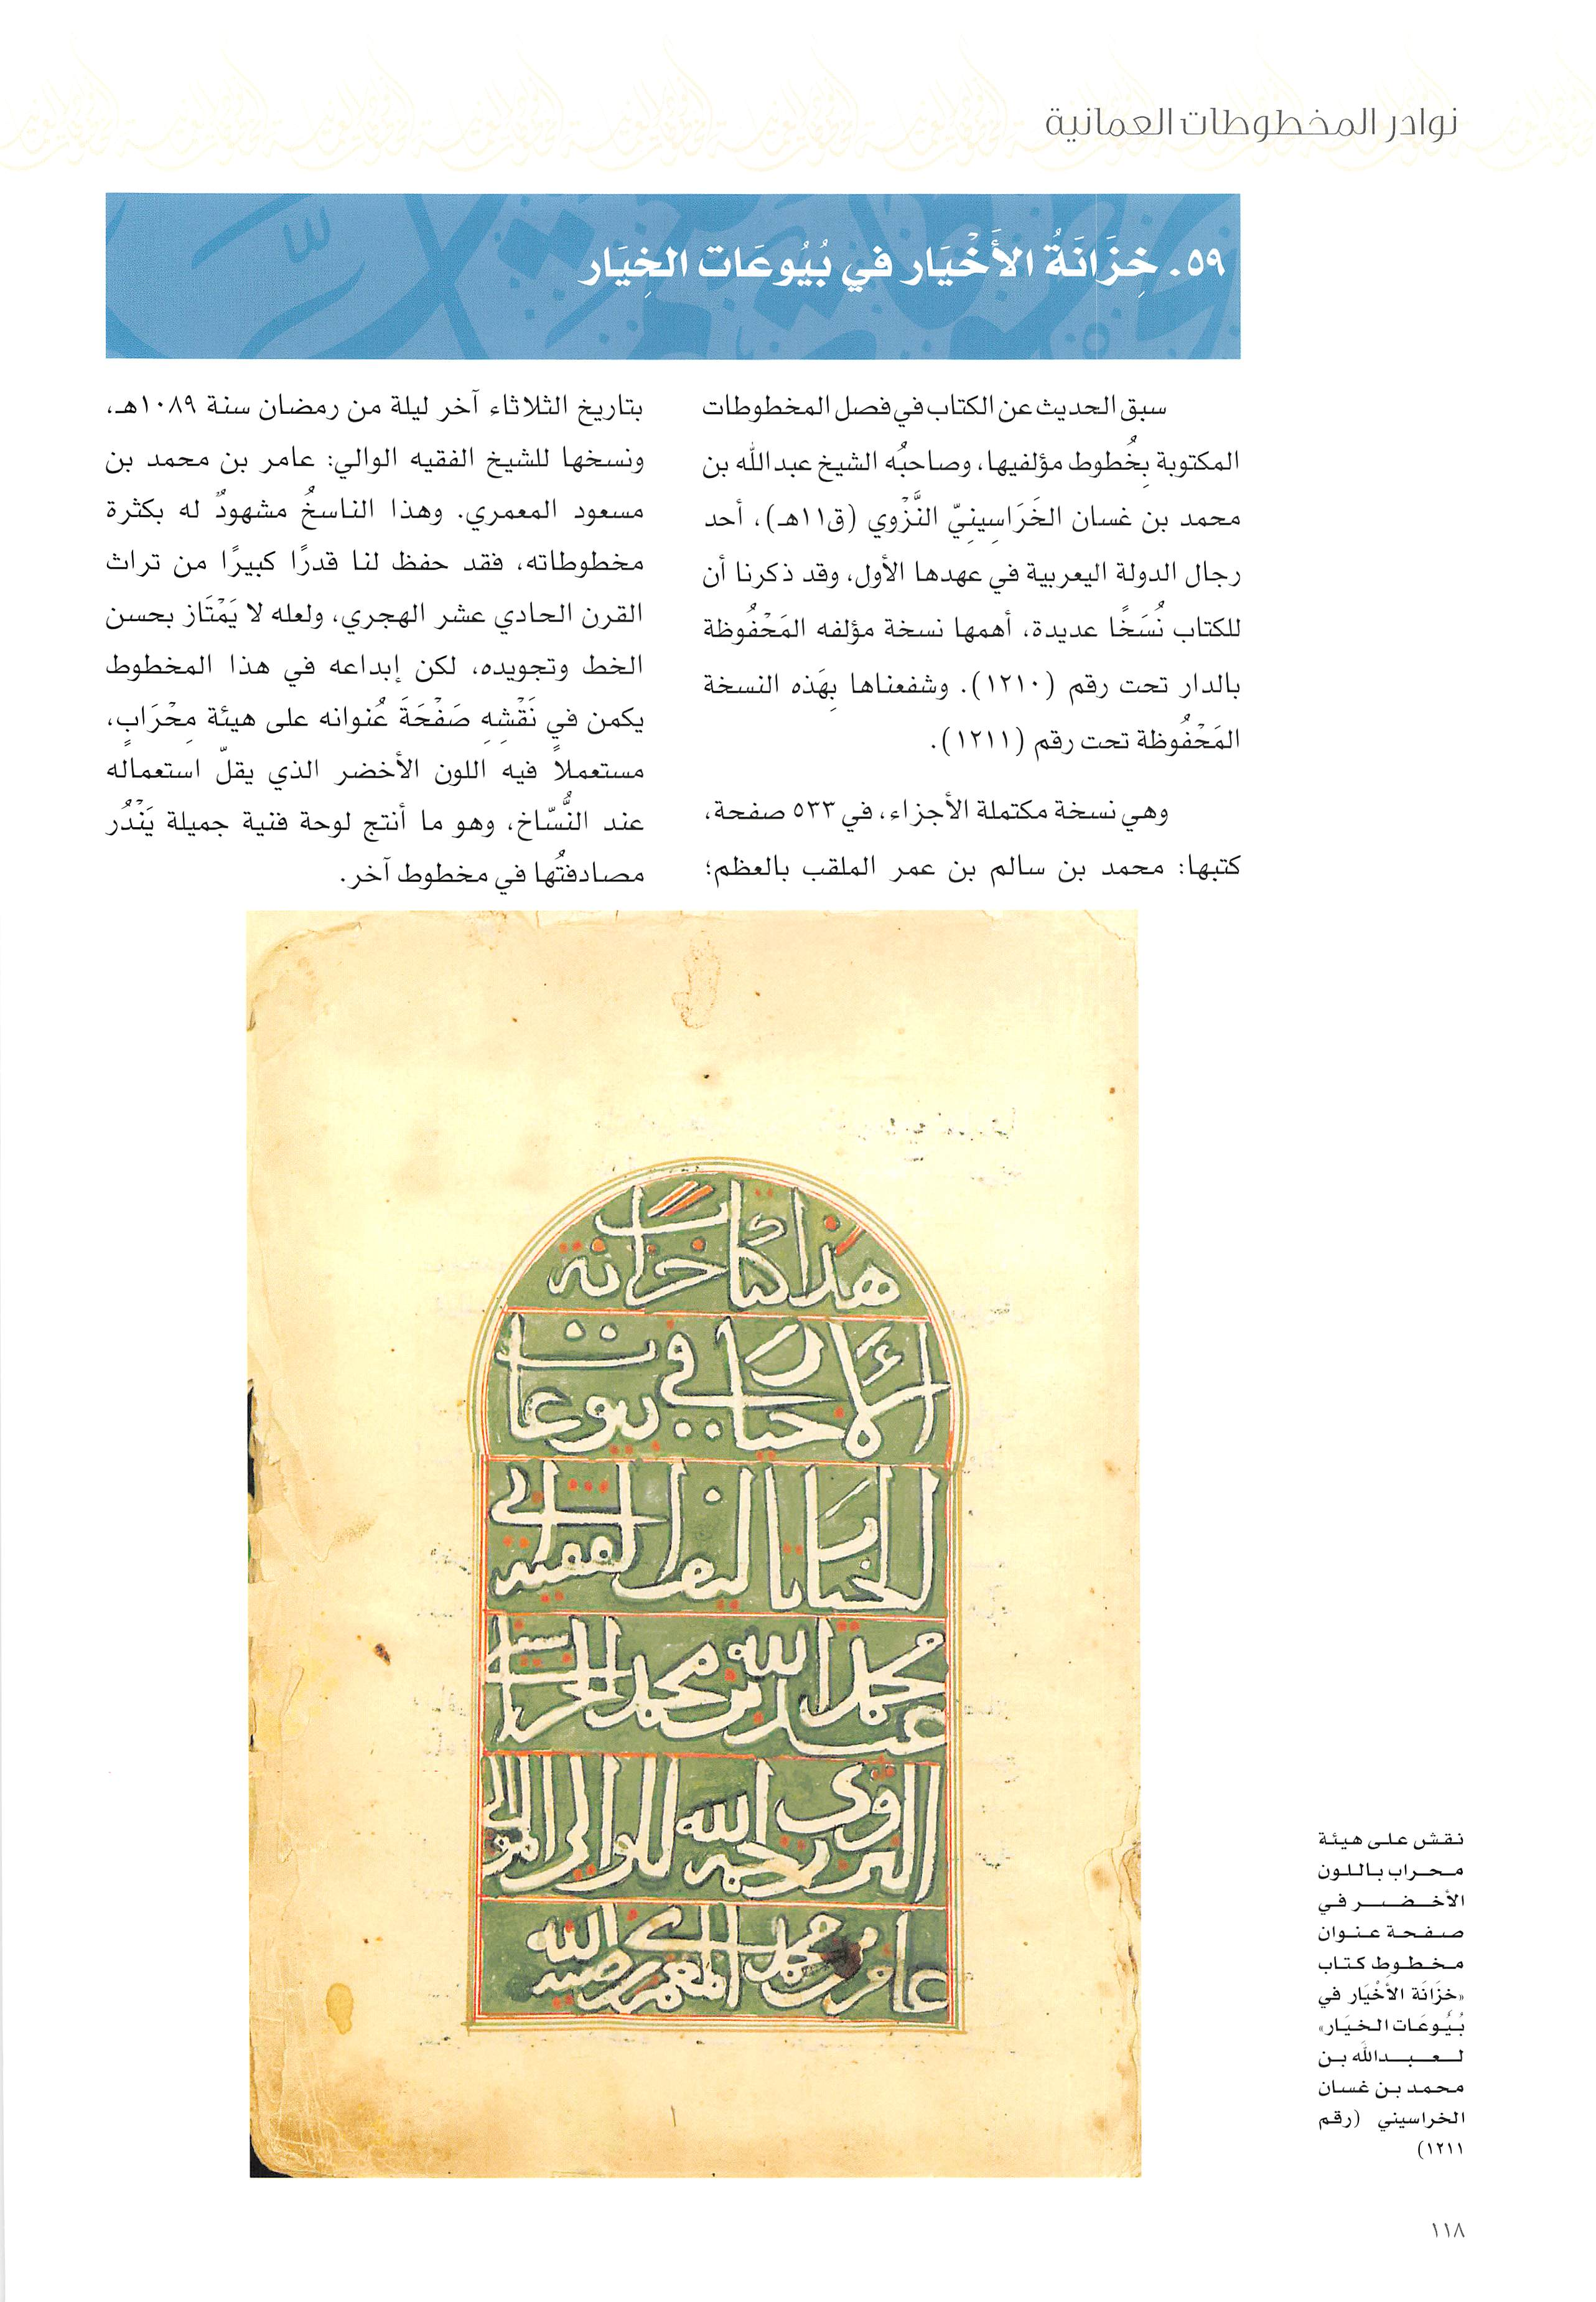 نوادر المخطوطات العمانية
٥٩. خِزَانَةُ الأَخْيَار في بُيُوعَات الخِيَار
سبق الحديث عن الكتاب في فصل المخطوطات
المكتوبة بِخُطوط مؤلفيها، وصاحبُه الشيخ عبد الله بن
محمد بن غسان الخَرَاسِينِيّ النَّزْوي (ق١١هـ)، أحد
رجال الدولة اليعربية في عهدها الأول، وقد ذكرنا أن
للكتاب نُسَخًا عديدة، أهمها نسخة مؤلفه المَحْفُوظة
بالدار تحت رقم (١٢١٠). وشفعناها بِهَذه النسخة
المَحْفُوظة تحت رقم (١٢١١).
وهي نسخة مكتملة الأجزاء، في ٥٣٣ صفحة،
كتبها: محمد بن سالم بن عمر الملقب بالعظم؛
بتاريخ الثلاثاء آخر ليلة من رمضان سنة ١٠٨٩هـ،
ونسخها للشيخ الفقيه الوالي: عامر بن محمد بن
مسعود المعمري. وهذا الناسخُ مشهودٌ له بكثرة
مخطوطاته، فقد حفظ لنا قدرًا كبيرًا من تراث
القرن الحادي عشر الهجري، ولعله لا يَمْتَاز بحسن
الخط وتجويده، لكن إبداعه في هذا المخطوط
يكمن في نَقْشِهِ صَفْحَةَ عُنوانه على هيئة مِحْرَابٍ،
مستعملاً فيه اللون الأخضر الذي يقلّ استعماله
عند النُّسّاخ، وهو ما أنتج لوحة فنية جميلة يَنْدُر
مصادفتُها في مخطوط آخر.
هذا كتاب خزانة
الأخيار في بيوعات
الخيار تأليف الفقيه
عبد الله بن محمد
النزوي رحمه الله للوالي
عامر بن محمد المعمري رضيه الله
نقش على هيئة
محراب باللون
الأخضر في
صفحة عنوان
مخطوط كتاب
«خزَانَة الأخْيَار في
بُيُوعَات الخيَار»
لعبدالله بن
محمد بن غسان
الخراسيني (رقم
١٢١١)
١١٨